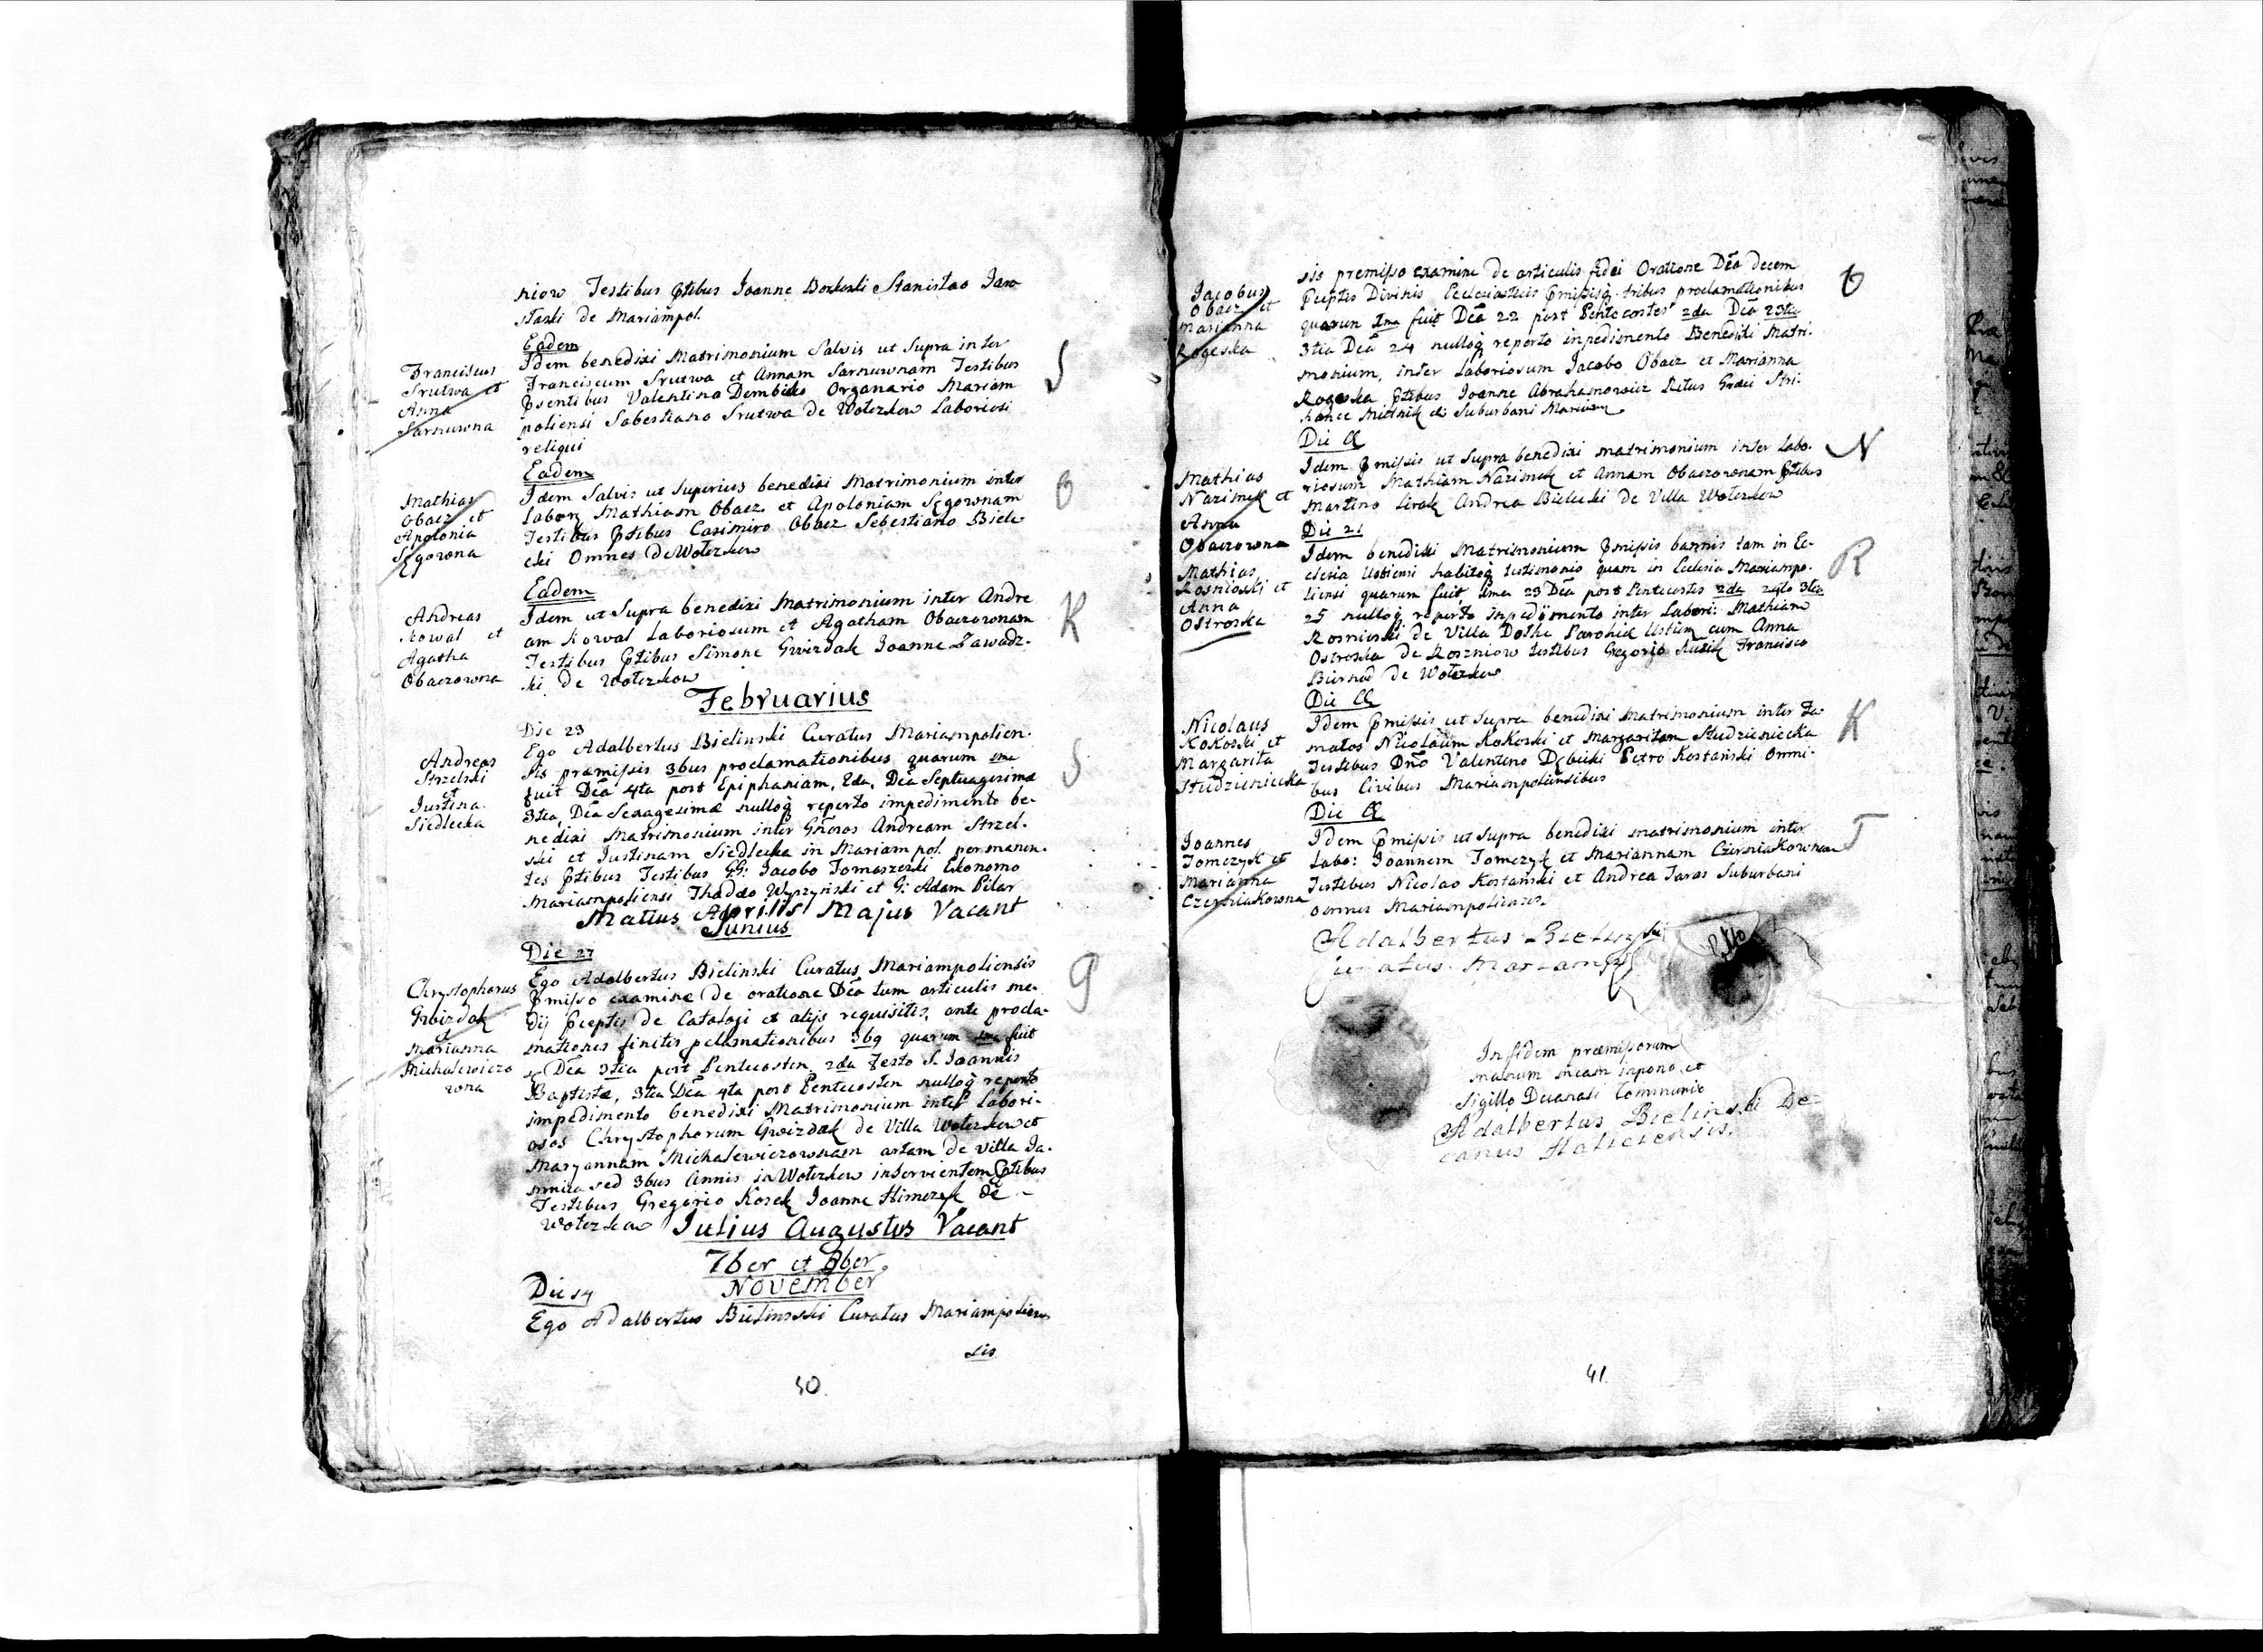 niow Testibus ptibus Joanne Stanislao Jaro
de Mariampol.
Eadem
Franciscus
Srutwa et
Anna
Sarnuwna
Idem benedixi Matrimonium Salvis ut Supra inter
Franciscum Srutwa et Annam Sarnuwnam Testibus
psentibus Valentino Dembicki Organario Mariam
poliensi Sebestiano Srutwa de Wołczkow Laboriosi
reliqui
Eadem
Mathias
Obacz et
Apolonia
Sęgowna
Idem Salvis ut Superius benedixi Matrimonium inter
Labory Mathiam Obacz et Apoloniam Sęgownam
Testibus ptibus Casimiro Obacz Sebestiano Biele
cki Omnes de Wołczkow
Eadem
Andreas
Kowal et
Agatha
Obaczowna
Idem ut Supra benedixi Matrimonium inter Andre
am Kowal Laboriosum et Agatham Obaczownam
Testibus ptibus Simone Gwizdak Joanne Zawadz-
ki de Wołczkow
Februarius
Die 23
Andreas
Strzelski
et
Justina
Siedlecka
Ego Adalbertus Bielinski Curatus Mariampolien-
sis præmissis 3bus proclamationibus quarum 1ma
fuit Dca 4ta post Epiphaniam, 2da, Dca Septuagesimæ
3tia, Dca Sexagesimæ nulloq reperto impedimento be-
nedixi Matrimonium inter Gnosos Andream Strzel-
ski et Justinam Siedlecka in Mariampol permanen-
tes ptibus Testibus GG: Jacobo Tomaszeski Ekonomo
Mariampoliensi Thaddo Wyszynski et G: Adam Pilar
Matius Aprilis Majus Vacant
Junius
Die 27
Chrystophorus
Gwizdak
et
Marianna
Michalewiczo
wna
Ego Adalbertus Bielinski Curatus Mariampoliensis
pmisso examine de oratione Dca tum articulis me-
dij pceptis de Catalogi et alijs requisitis, ante procla-
mationes finitis pclamationibus 3bq quarum 1ma fuit
Dca 3tia post Pentecosten, 2da Festo S. Joannis
Baptistæ, 3tia Dca 4ta post Pentecosten nulloq reperto
impedimento benedixi Matrimonium inter labori-
osos Chrystophorum Gwizdak de Villa Wołczkow et
Maryannam Michalewiczownam ortam de Villa Ja-
mnica sed 3bus Annis in Wołczkow inservientem ptibus
Testibus Gregorio Kosek Joanne Himczyk de
Wołczkow Julius Augustus Vacant
7ber et 8ber
November
Die 14
Ego Adalbertus Bielinski Curatus Mariampolien
sis
40
Jacobus
Obacz et
Marianna
Rogoska
sis premisso examine de articulis fidei Oratione Dca decem
pceptis Divinis Ecclesiasticis pmissisq tribus proclamationibus
quarun 1ma fuit Dca 22 post Pentecostes 2da Dca 23tia
3tia Dca 24 nulloq reperto inpedimento Benedixi Matri-
monium, inter Laboriosum Jacobo Obacz et Marianna
Rogoska ptibus Joanne Abrahamowicz Ritus Græci Stri-
hance Mielnik de Suburbani Mariam
Die
Mathias
Nazimek et
Anna
Obaczowna
Idem pmissis ut Supra benedixi matrimonium inter Labo-
riosum Mathiam Nazimek et Annam Obaczownam ptibus
Martino Andrea Bielecki de Villa Wołczkow
Die 21
Mathias
Rosnioski et
Anna
Ostroska
Idem benedixi Matrimonium pmissis bannis tam in Ec-
clesia Ustiensi habitoq testimonio quam in Eclesia Mariampo-
liensi quarum fuit 1ma 23 Dca post Pentecostes 2da 24to 3tia
25 nulloq reperto inpedimento inter Labori: Mathiam
Rosnioski de Villa Dołhe Parohiæ Ustien cum Anna
Ostroska de Roszniow testibus Gregorio Kuzik Francisco
Biernad de Wołczkow
Die
Nicolaus
KoKoski et
Margarita
Studzieniecka
Idem pmissis ut Supra benedixi Matrimonium inter Fa-
matos Nicolaum KoKoski et Margaritam Studzieniecka
Testibus Dno Valenteno Dębicki Petro Kostański Omni-
bus Civibus Mariampoliensibus
Die
Joannes
Tomczyk et
Marianna
Czerniakowna
Idem pmissis ut Supra benedixi matrimonium inter
Labo: Joannem Tomczyk et Mariannam Czerniakownam
Testibus Nicolao Kostański et Andrea Taras Suburbani
omnes Mariampolienses
Adalbertus Bielinski
Curatus Mariamp
In fidem præmissorum
manum meam inpono, et
Sigillo Decanali Communio
Adalbertus Bielinski De-
canus Haliciensis.
41